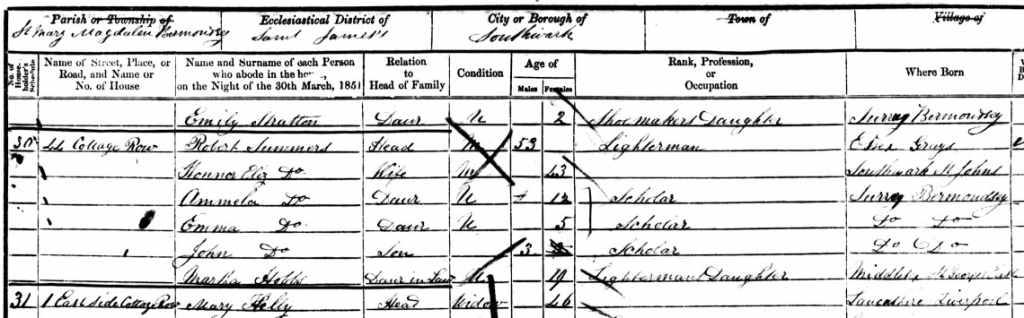 Parish or Township of Ecclesiastical District of City or Borough of Town of Village of
St Mary Magdalen Bermondsey Saint James's Southwark
No. of House-holder's Schedule Name of Street, Place, or Road, and Name or No. of House Name and Surname of each Person who abode in the house, on the Night of the 30th March, 1851 Relation to Head of Family Condition Age of Males Females Rank, Profession, or Occupation Where Born
Emily Stratton Daur U 2 Shoemakers Daughter Surrey Bermondsey
30 Cottage Row Robert Summers Head M 53 Lighterman Essex Grays
Honnor Eliz Do Wife M 43 Southwark St Johns
Ammela Do Daur U 12 Scholar Surrey Bermondsey
Emma Do Daur U 5 Scholar Do Do
John Do Son 3 Scholar Do Do
Martha Hobbs Daur in Law U 19 Lightermans Daughter Middlx
31 1 East Side Cottage Row Mary Kelly Head Widow 46 Lancashire Liverpool